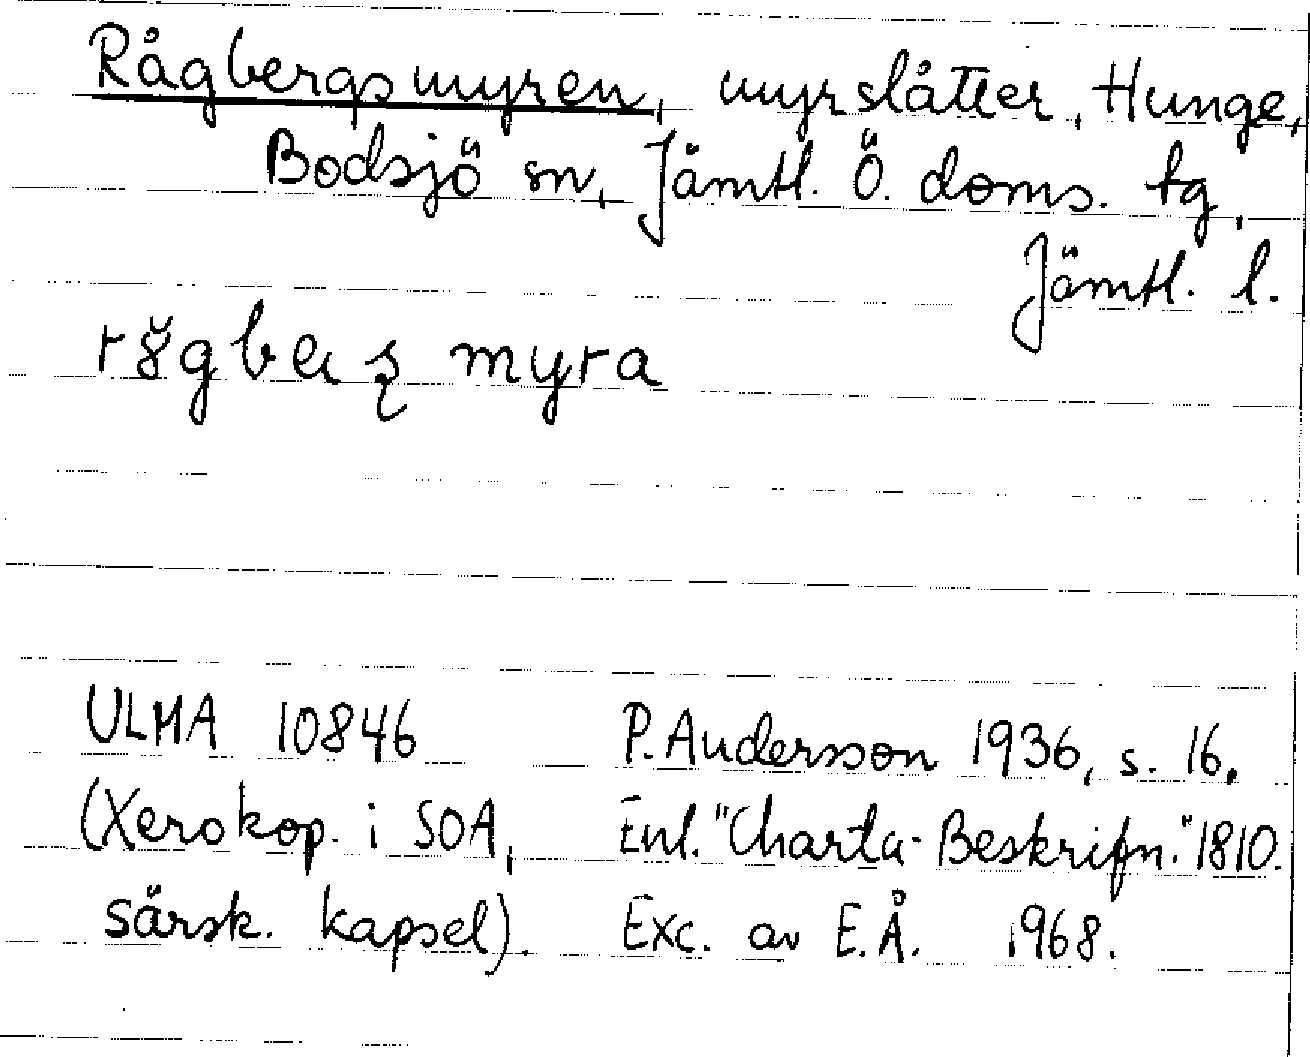 Rågbergsmyren, myrslåtter, Hunge,
Bodsjö sn, Jämtl. Ö. doms. tg,
Jämtl. l.
myra
ULMA 10846 P. Andersson 1936, s. 16.
(Xerokop. i SOA, Enl. "Charta-Beskrifn." 1810.
särsk. kapsel). Exc. av E.Å. 1968.